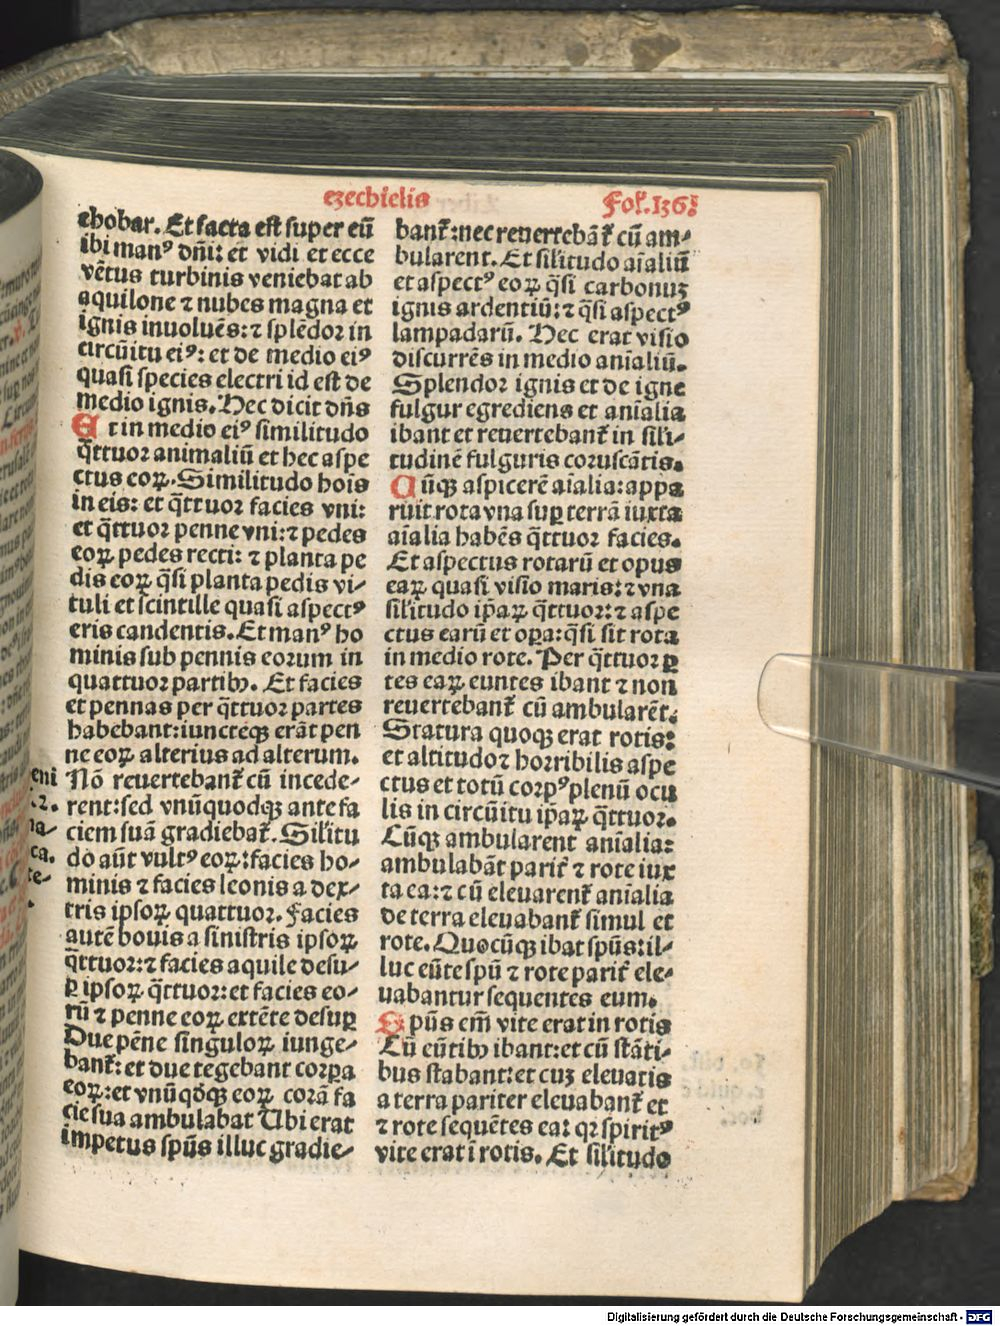 ezechielis
Fol. 136
chobar. Et facta est super eū
ibi manꝰ dñi: et vidi et ecce
vētus turbinis veniebat ab
aquilone ⁊ nubes magna et
ignis inuoluēs: ⁊ splēdor in
circūitu eiꝰ: et de medio eiꝰ
quasi species electri id est de
medio ignis. Hec dicit dñs
Et in medio eiꝰ similitudo
q̄ttuor animaliū et hec aspe
ctus eoꝝ. Similitudo hoīs
in eis: et q̄ttuor facies vni:
et q̄ttuor penne vni: ⁊ pedes
eoꝝ pedes recti: ⁊ planta pe
dis eoꝝ q̄si planta pedis vi-
tuli et scintille quasi aspectꝰ
eris candentis. Et manꝰ ho
minis sub pennis eorum in
quattuor partibꝫ. Et facies
et pennas per q̄ttuor partes
habebant: iuncteqꝫ erāt pen
ne eoꝝ alterius ad alterum.
Nō reuertebant̄ cū incede-
rent: sed vnūquodqꝫ ante fa
ciem suā gradiebat̄. Silītu
do aūt vultꝰ eoꝝ: facies ho-
minis ⁊ facies leonis a dex-
tris ipsoꝝ quattuor. Facies
autē bouis a sinistris ipsoꝝ
q̄ttuor: ⁊ facies aquile desu-
ꝑ ipsoꝝ q̄ttuor: et facies eo-
rū ⁊ penne eoꝝ extēte desuꝑ
Due pēne singuloꝝ iunge-
bant̄: et due tegebant corꝑa
eoꝝ: et vnūqd̄qꝫ eoꝝ corā fa
cie sua ambulabat Ubi erat
impetus spūs illuc gradie-
bant̄: nec reuertebāt̄ cū am-
bularent. Et silītudo aīaliū
et aspectꝰ eoꝝ q̄si carbonuꝫ
ignis ardentiū: ⁊ q̄si aspectꝰ
lampadarū. Hec erat visio
discurrēs in medio anīaliū.
Splendor ignis et de igne
fulgur egrediens et anīalia
ibant et reuertebant̄ in silī-
tudinē fulguris coruscātis.
Cūqꝫ aspicerē aīalia: appa
ruit rota vna suꝑ terrā iuxta
aīalia habēs q̄ttuor facies.
Et aspectus rotarū et opus
eaꝝ quasi visio maris: ⁊ vna
silītudo ip̄aꝝ q̄ttuor: ⁊ aspe
ctus earū et oꝑa: q̄si sit rota
in medio rote. Per q̄ttuor ꝑ
tes eaꝝ euntes ibant ⁊ non
reuertebant̄ cū ambularēt.
Statura quoqꝫ erat rotis:
et altitudo ⁊ horribilis aspe
ctus et totū corpꝰ plenū ocu
lis in circūitu ip̄aꝝ q̄ttuor.
Cūqꝫ ambularent anīalia:
ambulabāt parit̄ ⁊ rote iux
ta ea: ⁊ cū eleuarent̄ anīalia
de terra eleuabant̄ simul et
rote. Quocūqꝫ ibat spūs: il-
luc eūte spū ⁊ rote parit̄ ele-
vabantur sequentes eum.
Spūs em̄ vite erat in rotis
Cū eūtibꝫ ibant: et cū stāti-
bus stabant: et cuꝫ eleuatis
a terra pariter eleuabant̄ et
⁊ rote sequētes ea: qꝛ spiritꝰ
vite erat ī rotis. Et silītudo
Digitalisierung gefördert durch die Deutsche Forschungsgemeinschaft - DFG